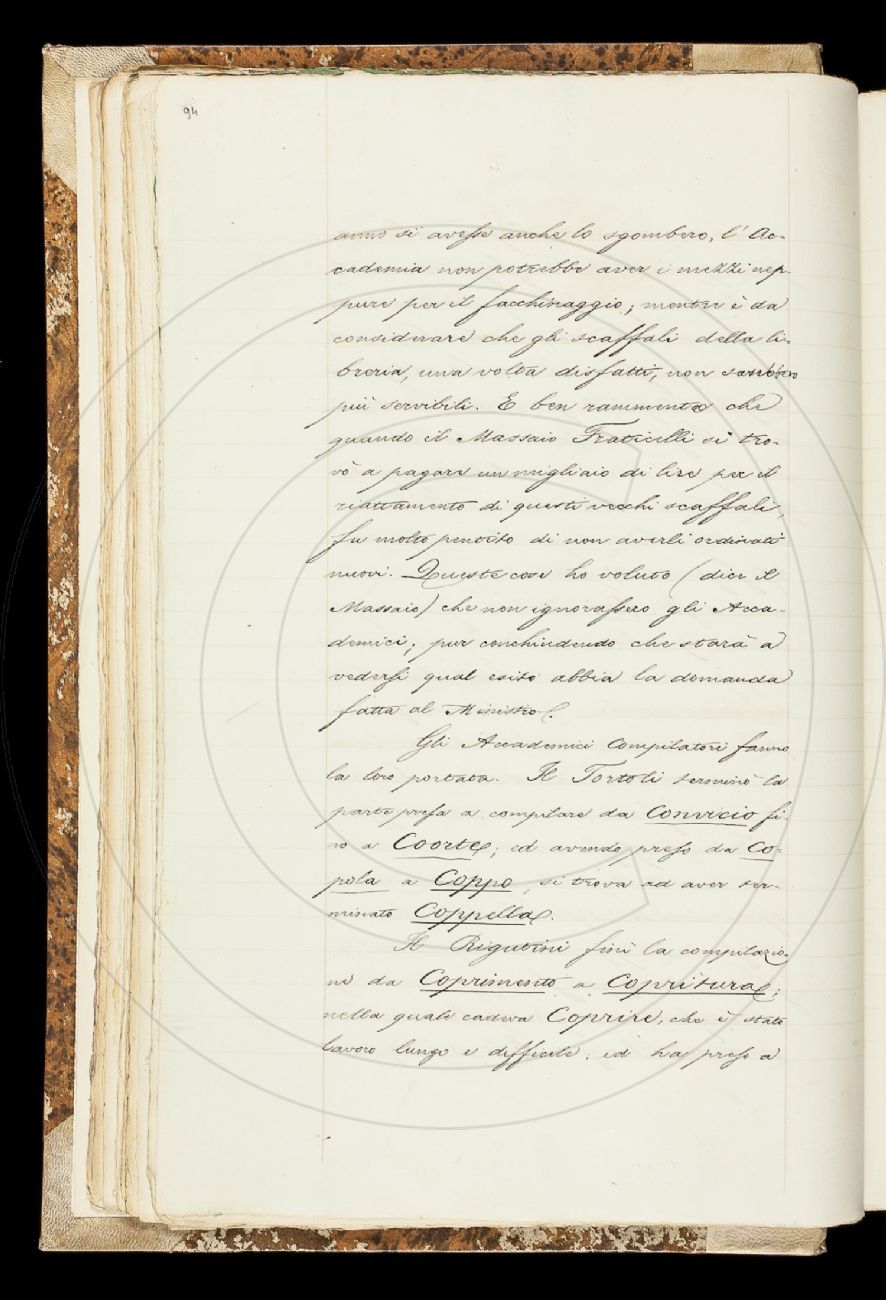 94
anno si avesse anche lo sgombero, l'Ac-
cademia non potrebbe aver i mezzi nep-
pure per il facchinaggio; mentre è da
considerare che gli scaffali della li-
breria, una volta disfatti, non sarebbero
più servibili. E ben rammenta che
quando il Massaio Fraticelli si tro-
vò a pagare un migliaio di lire per il
riattamento di questi vecchi scaffali,
fu molto pentito di non averli ordinati
nuovi. Queste cose ho voluto (dice il
Massaio) che non ignorassero gli Acca-
demici; pur conchiudendo che starà a
vedersi qual esito abbia la domanda
fatta al Ministro.
Gli Accademici Compilatori fanno
la loro portata. Il Tortoli terminò la
parte presa a compilare da Convicio fi-
no a Coorte; ed avendo preso da Co-
pola a Coppo, si trova ad aver ter-
minato Coppella.
Il Rigutini finì la compilazio-
ne da Coprimento a Copritura;
nella quale cadeva Coprire, che è stato
lavoro lungo e difficile; ed ha preso a